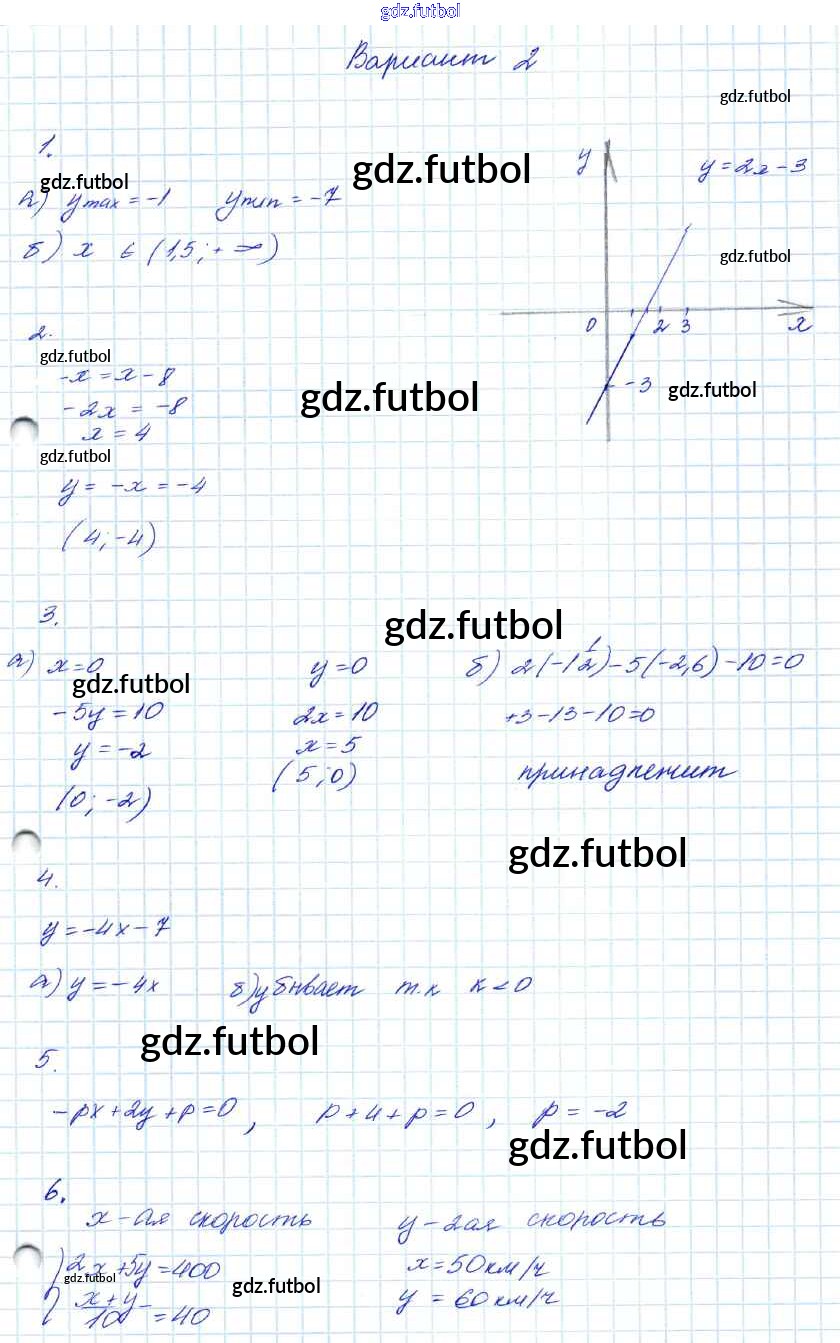 gdz.futbol
Вариант 2
gdz.futbol
1.
gdz.futbol
gdz.futbol
y
y = 2x - 3
а) ymax = -1 ymin = -7
б) x ∈ (1,5; + ∞)
gdz.futbol
0 2 3 x
2.
gdz.futbol
-x = x - 8
-3
gdz.futbol
gdz.futbol
-2x = -8
x = 4
gdz.futbol
y = -x = -4
(4; -4)
3.
gdz.futbol
а) x=0 y=0 б) 2(-1 1/2) - 5(-2,6) - 10 = 0
gdz.futbol
-5y = 10 2x = 10 +3 - 13 - 10 = 0
y = -2 x = 5
(0; -2) (5; 0) принадлежит
gdz.futbol
4.
y = -4x - 7
а) y = -4x б) убывает т.к k < 0
gdz.futbol
5.
-px + 2y + p = 0, p + 4 + p = 0, p = -2
gdz.futbol
6.
x - ая скорость y - 2ая скорость
2x + 5y = 400 x = 50 км/ч
gdz.futbol
gdz.futbol
x + y / 10 = 40 y = 60 км/ч